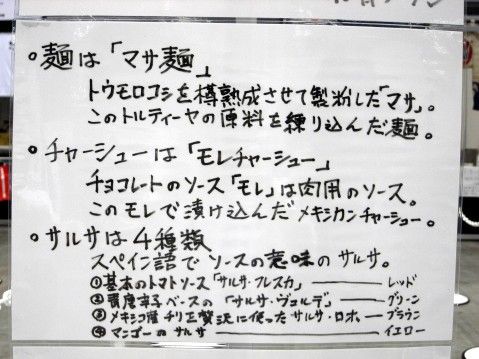 。麺は「マサ麺」
トウモロコシを樽熟成させて製粉した「マサ」。
このトルティーヤの原料を練り込んだ麺。
。チャーシューは「モレチャーシュー」
チョコレートのソース「モレ」は肉用のソース。
このモレで漬け込んだメキシカンチャーシュー。
。サルサは4種類
スペイン語でソースの意味のサルサ。
①基本のトマトソース「サルサ・フレスカ」――レッド
②青唐辛子ベースの「サルサ・ヴェルデ」――グリーン
③メキシコ産チリを贅沢に使ったサルサ・ロホ――ブラウン
④マンゴーのサルサ――イエロー